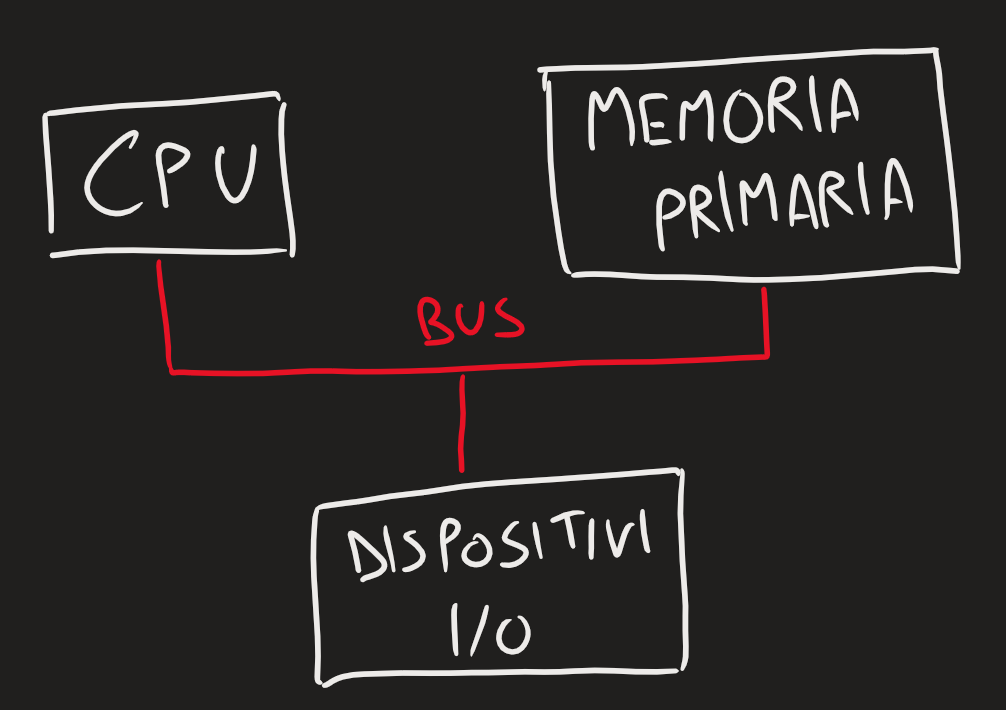 CPU
MEMORIA
PRIMARIA
BUS
DISPOSITIVI
I/O